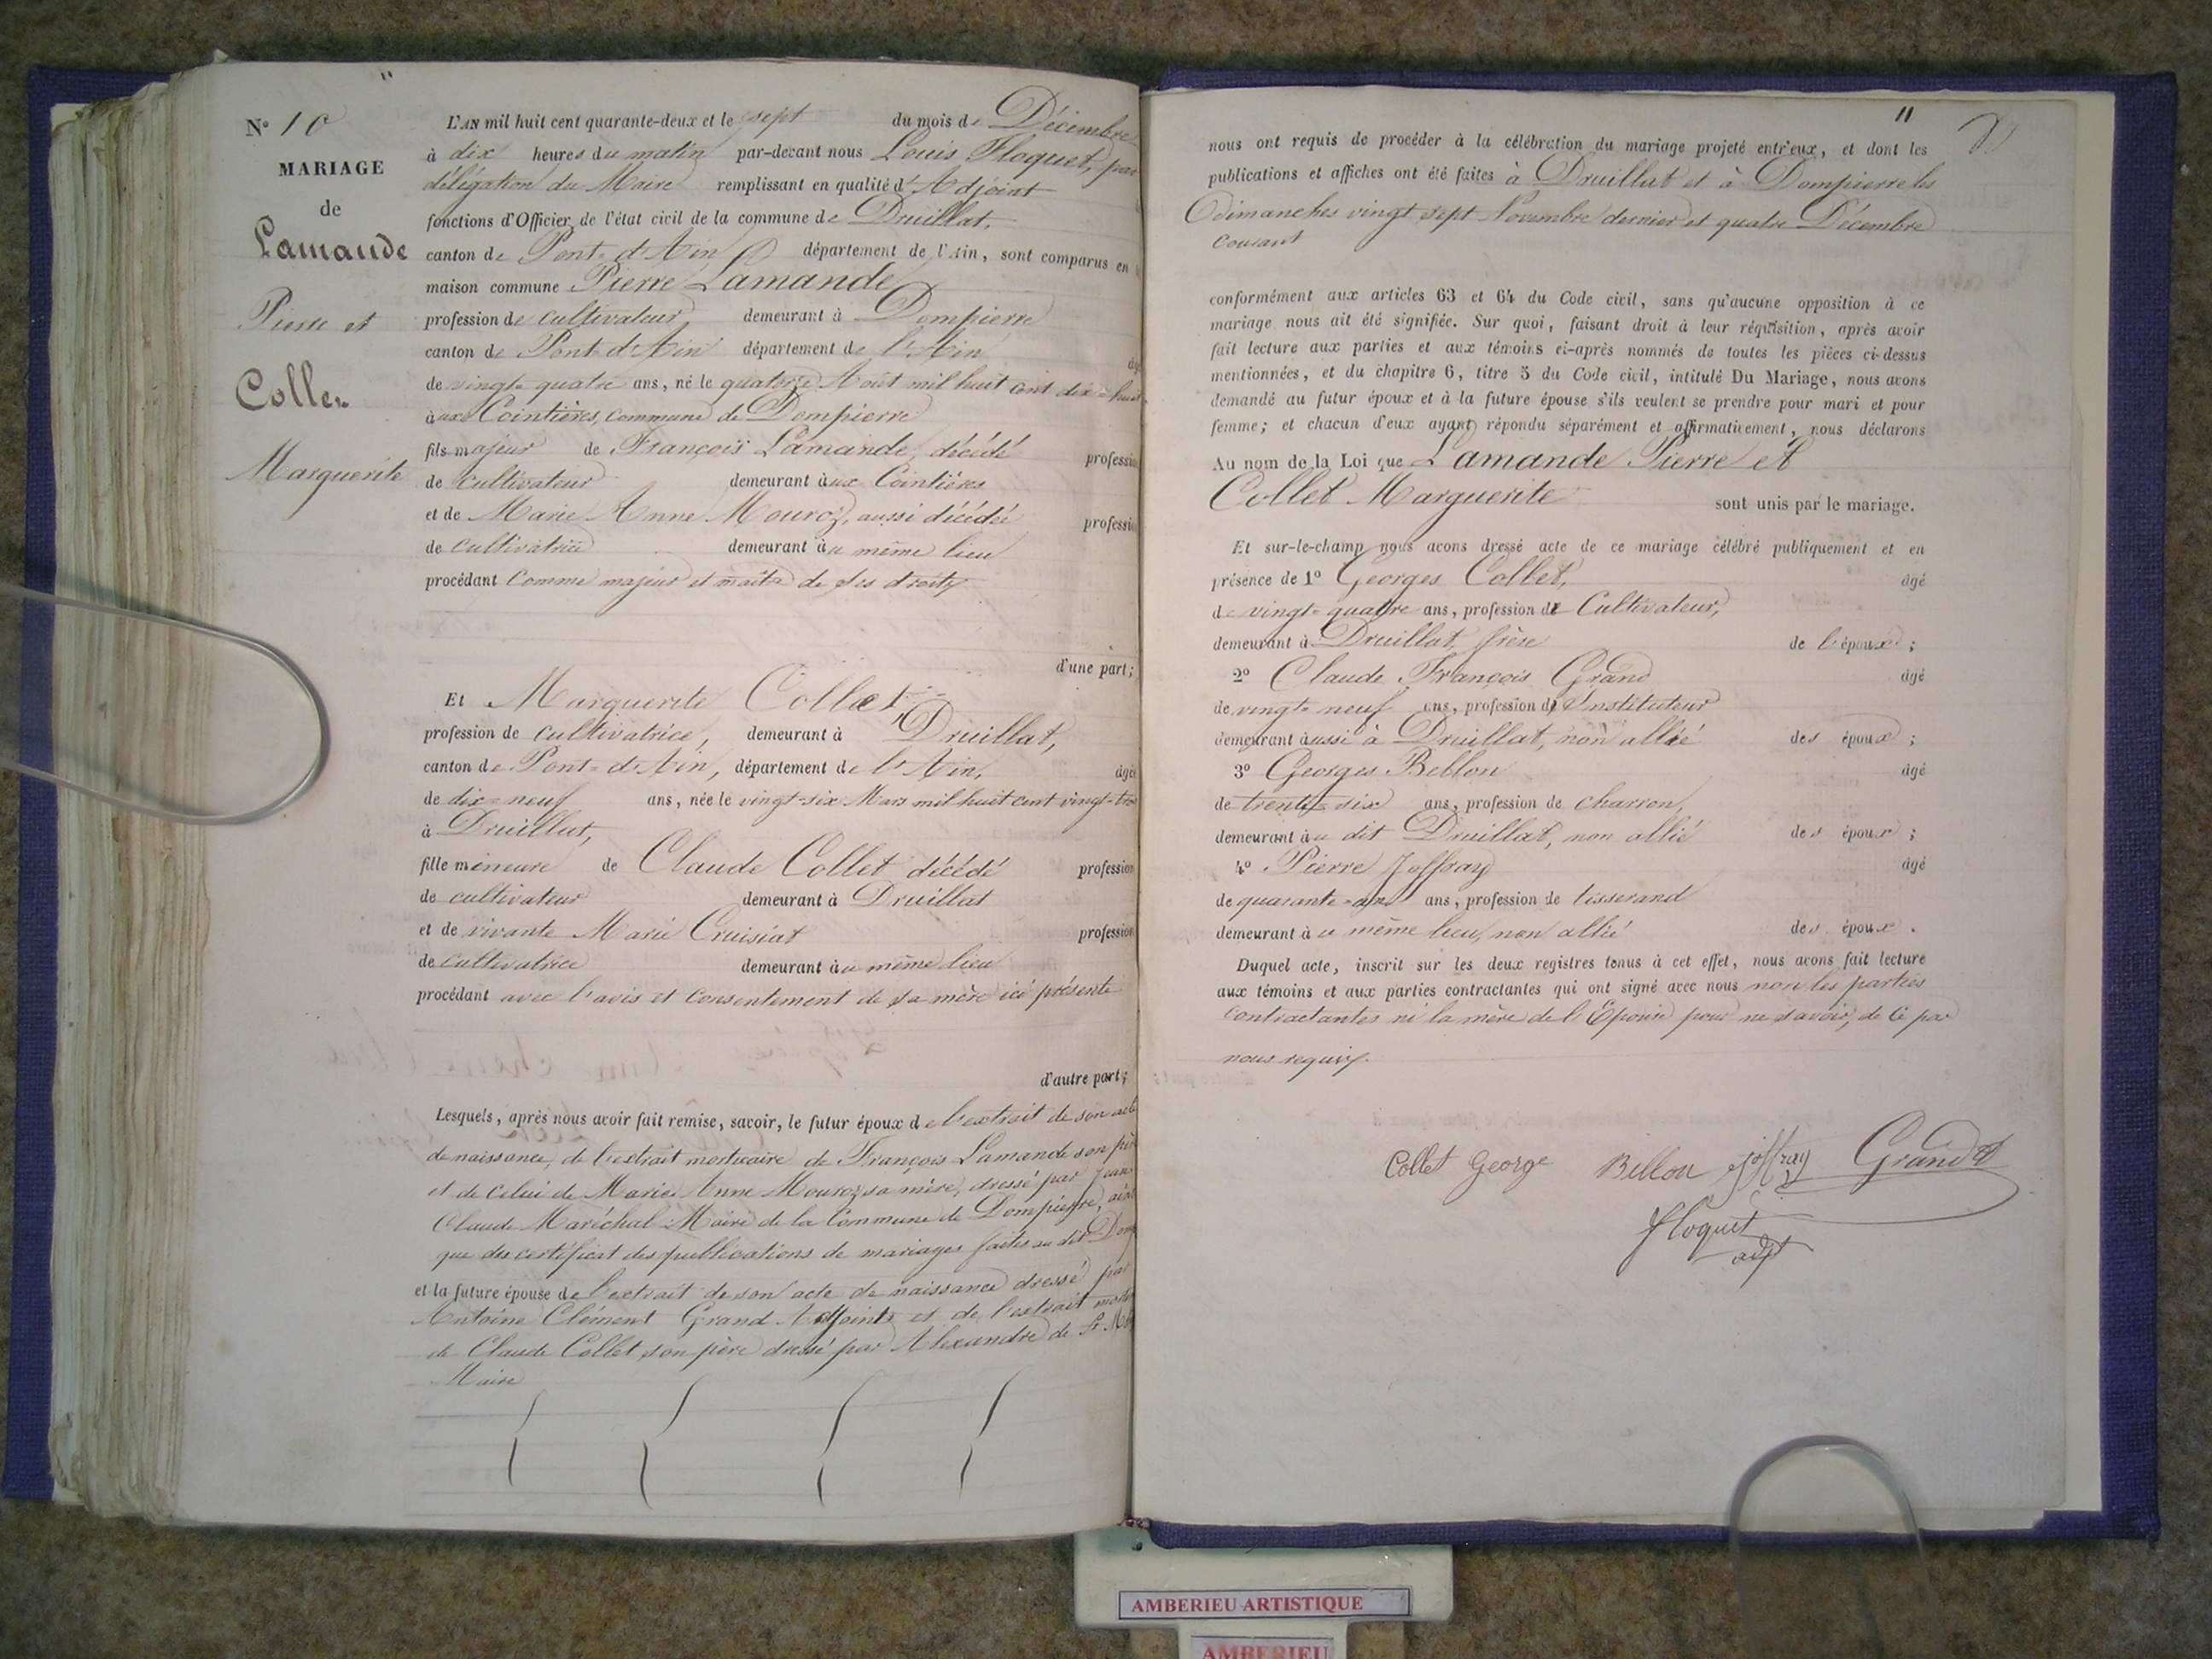 "
N° 10
MARIAGE
de
Lamande
Pierre et
Collet
Marguerite
L'AN mil huit cent quarante-deux et le sept du mois de Décembre
à dix heures du matin par-devant nous Louis Floquet, par
délégation du Maire remplissant en qualité d'Adjoint
fonctions d'Officier de l'état civil de la commune de Druillat,
canton de Pont-d'Ain département de l'Ain, sont comparus en
maison commune Pierre Lamande
profession de cultivateur, demeurant à Dompierre
canton de Pont d'Ain département de l'Ain
de vingt-quatre ans, né le quatorze Août mil huit cent dix-huit
à aux Cointières, commune de Dompierre
fils majeur de François Lamande, décédé profession
de cultivateur demeurant aux Cointières
et de Marie Anne Mouroz, aussi décédée profession
de cultivatrice demeurant au même lieu
procédant comme majeur et maître de ses droits
d'une part;
Et Marguerite Collet
profession de cultivatrice, demeurant à Druillat,
canton de Pont-d'Ain, département de l'Ain, âgée
de dix-neuf ans, née le vingt-six Mars mil huit cent vingt-trois
à Druillat,
fille mineure de Claude Collet décédé profession
de cultivateur demeurant à Druillat
et de vivante Marie Cruisiat profession
de cultivatrice demeurant au même lieu
procédant avec l'avis et consentement de sa mère ici présente
d'autre part;
Lesquels, après nous avoir fait remise, savoir, le futur époux de l'extrait de son acte
de naissance, de l'extrait mortuaire de François Lamande son père
et de celui de Marie Anne Mouroz sa mère, dressé par Jean
Claude Maréchal Maire de la Commune de Dompierre,
que des certificat des publications de mariages faites au dit Domp
et la future épouse de l'extrait de son acte de naissance dressé par
Antoine Clément Grand Adjoint et de l'extrait
de Claude Collet son père dressé par Alexandre de
Maire
11
nous ont requis de procéder à la célébration du mariage projeté entr'eux, et dont les
publications et affiches ont été faites à Druillat et à Dompierre les
dimanches vingt sept Novembre dernier et quatre Décembre
courant
conformément aux articles 63 et 64 du Code civil, sans qu'aucune opposition à ce
mariage nous ait été signifiée. Sur quoi, faisant droit à leur réquisition, après avoir
fait lecture aux parties et aux témoins ci-après nommés de toutes les pièces ci-dessus
mentionnées, et du chapitre 6, titre 5 du Code civil, intitulé Du Mariage, nous avons
demandé au futur époux et à la future épouse s'ils veulent se prendre pour mari et pour
femme; et chacun d'eux ayant répondu séparément et affirmativement, nous déclarons
Au nom de la Loi que Lamande Pierre et
Collet Marguerite sont unis par le mariage.
Et sur-le-champ nous avons dressé acte de ce mariage célébré publiquement et en
présence de 1° Georges Collet, âgé
de vingt-quatre ans, profession de Cultivateur,
demeurant à Druillat, frère de l'épouse;
2° Claude François Grand âgé
de vingt-neuf ans, profession d'Instituteur
demeurant aussi à Druillat, non allié des époux;
3° Georges Bellon âgé
de trente-six ans, profession de charron,
demeurant au dit Druillat, non allié des époux;
4° Pierre Joffray âgé
de quarante-un ans, profession de tisserand
demeurant au même lieu, non allié des époux.
Duquel acte, inscrit sur les deux registres tenus à cet effet, nous avons fait lecture
aux témoins et aux parties contractantes qui ont signé avec nous non les parties
contractantes ni la mère de l'Epouse pour ne savoir, de ce par
nous requis.
Collet George Bellon joffray Grand
Floquet
adjt
AMBERIEU ARTISTIQUE
AMBERIEU